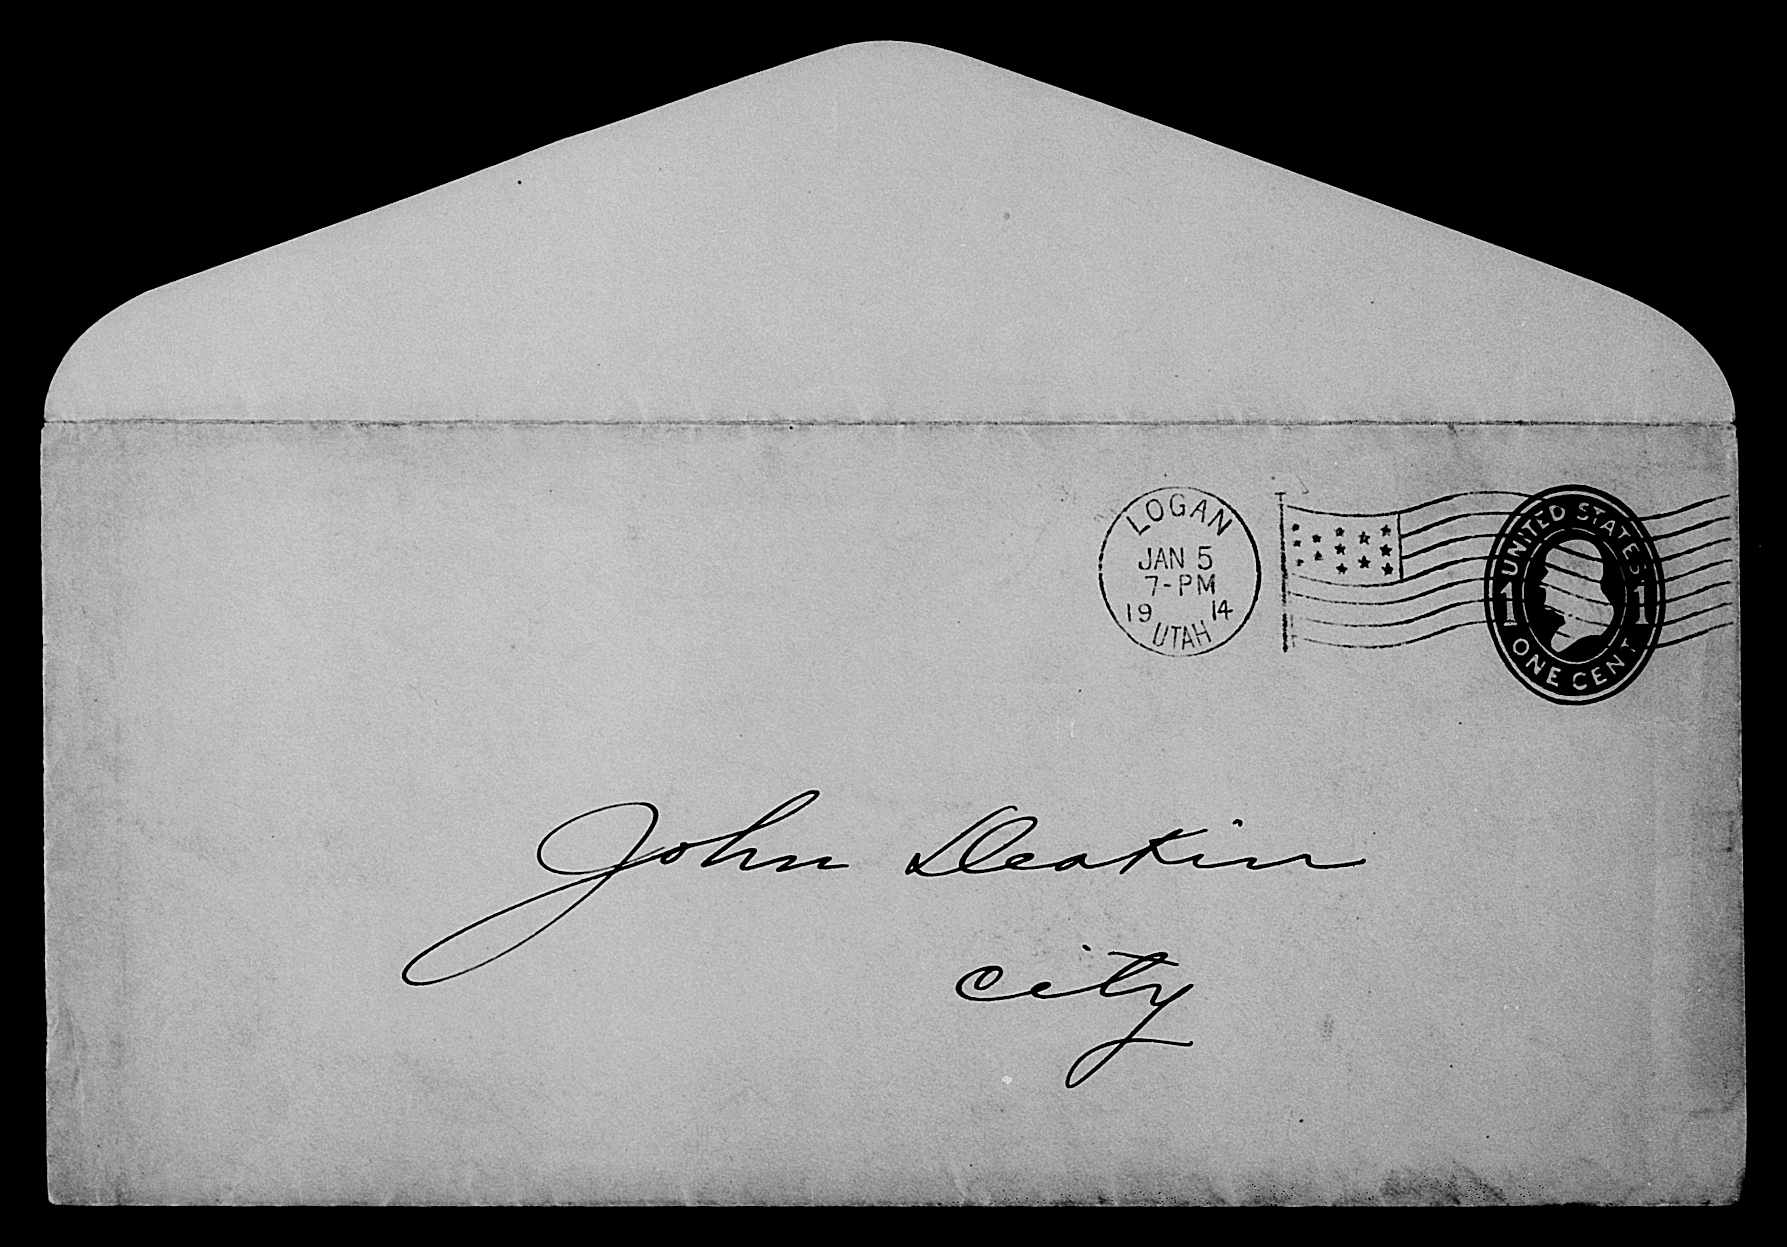 LOGAN
JAN 5
7-PM
19 14
UTAH
UNITED STATES
1 1
ONE CENT
John Deakin
City